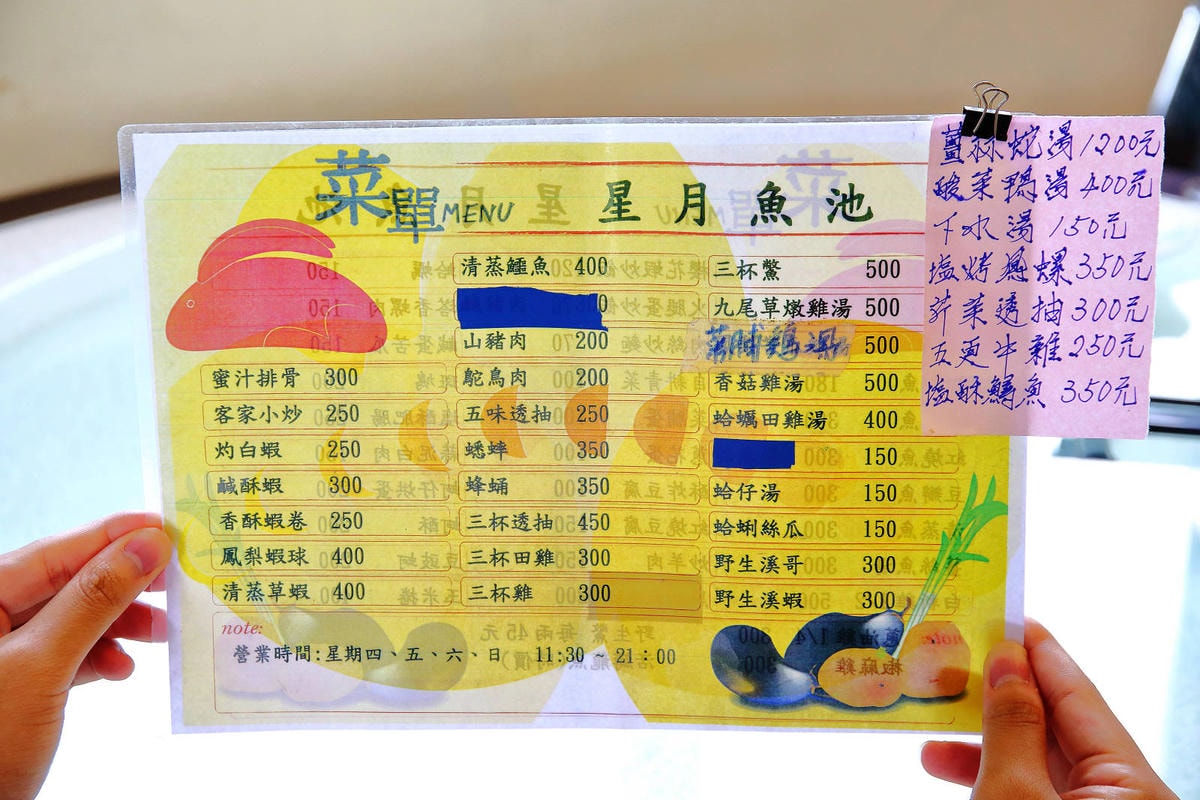 菜單MENU 星月魚池
蜜汁排骨 300
客家小炒 250
灼白蝦 250
鹹酥蝦 300
香酥蝦卷 250
鳳梨蝦球 400
清蒸草蝦 400
清蒸鱷魚 400
山豬肉 200
鴕鳥肉 200
五味透抽 250
蟋蟀 350
蜂蛹 350
三杯透抽 450
三杯田雞 300
三杯雞 300
三杯鱉 500
九尾草燉雞湯 500
500
香菇雞湯 500
蛤蠣田雞湯 400
150
蛤仔湯 150
蛤蜊絲瓜 150
野生溪哥 300
野生溪蝦 300
note:
營業時間:星期四、五、六、日 11:30 ~ 21:00
薑絲蛇湯1200元
酸菜鴨湯 400元
下水湯 150元
塩烤螺350元
芥菜透抽300元
五更牛雜250元
塩酥鱘魚 350元